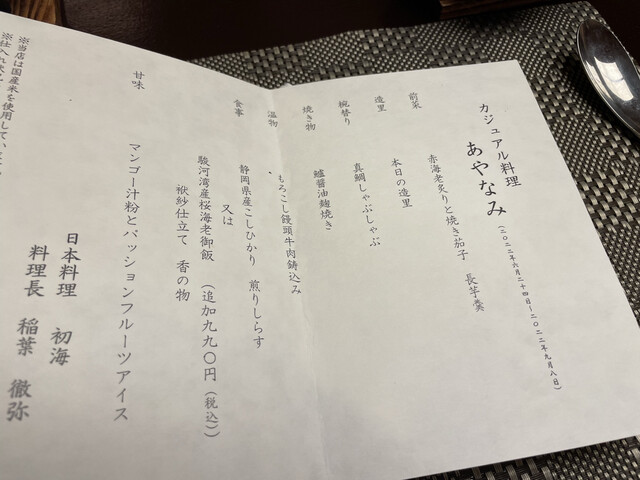 カジュアル料理
あやなみ
(二〇二二年六月二十四日〜二〇二二年九月八日)
前菜
赤海老炙りと焼き茄子 長芋羹
造里
本日の造里
椀替り
真鯛しゃぶしゃぶ
焼き物
鱸醤油麹焼き
温物
もろこし饅頭牛肉鋳込み
食事
静岡県産こしひかり 煎りしらす
又は
駿河湾産桜海老御飯 (追加九九〇円(税込))
袱紗仕立て 香の物
甘味
マンゴー汁粉とパッションフルーツアイス
日本料理 初海
料理長 稲葉 徹弥
※当店は国産米を使用してい
※仕入れ状